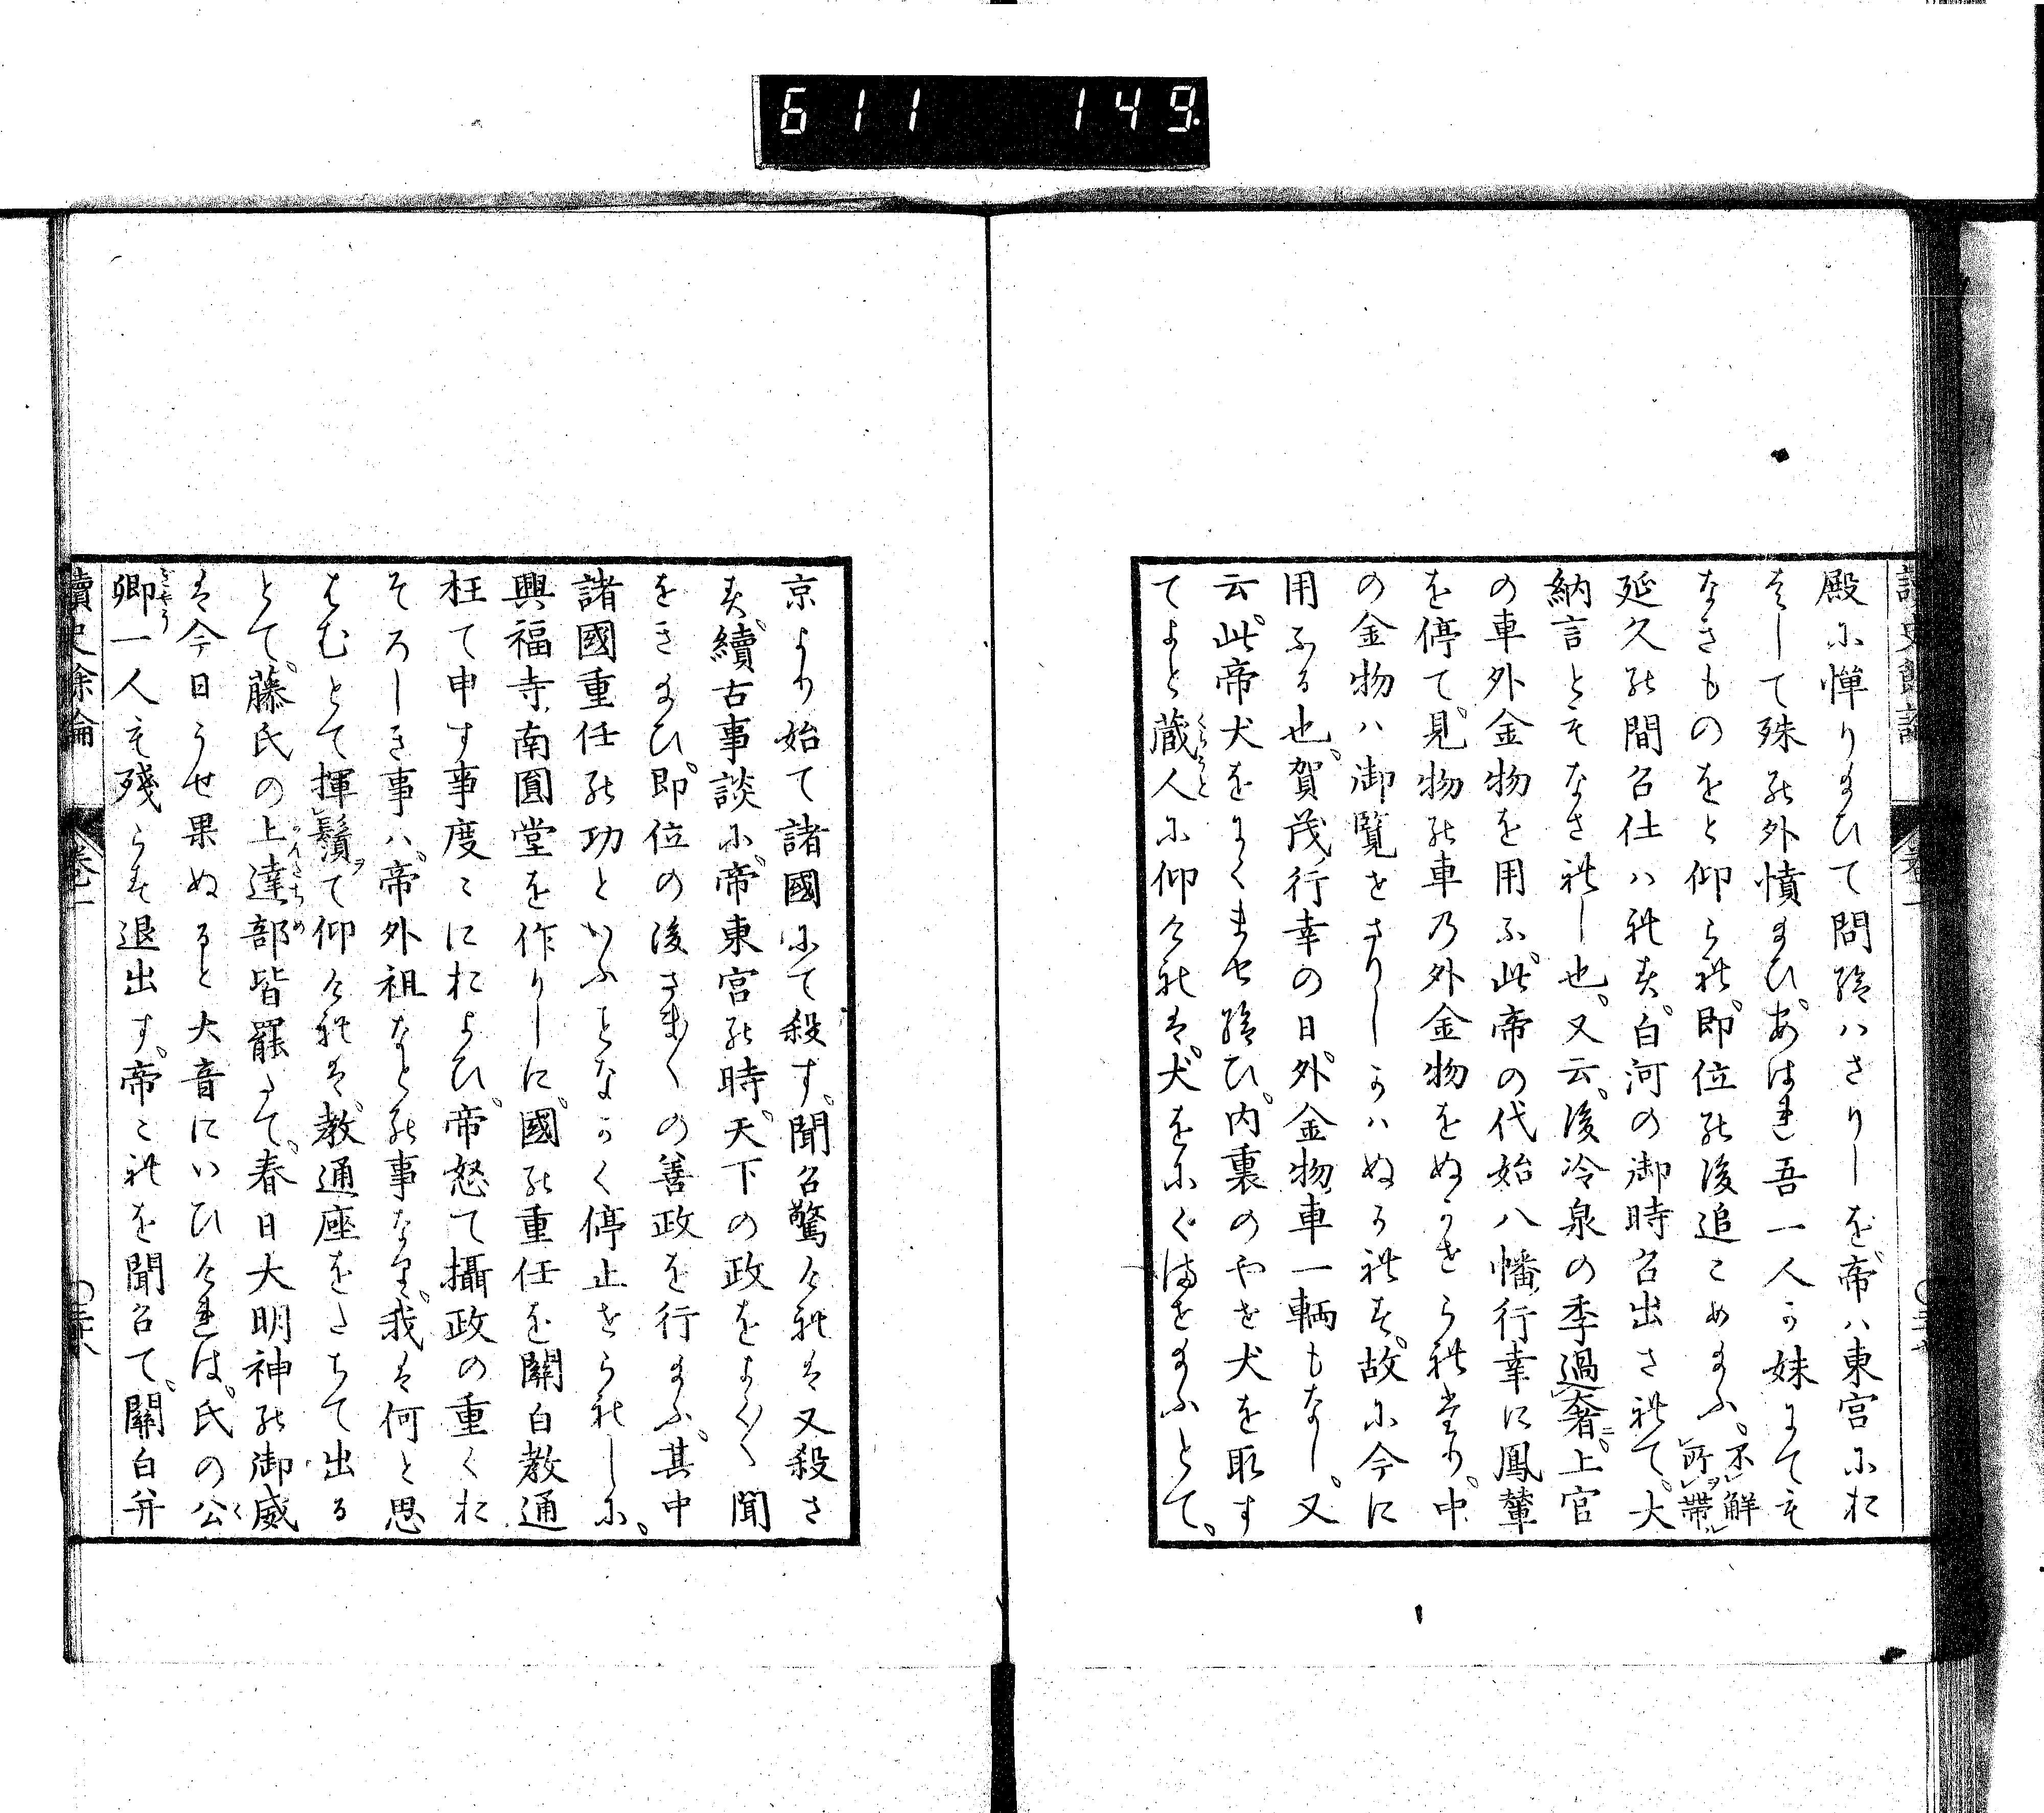 611 149
讀史餘論 卷一
殿に憚り玉ひて問給ハさりしを帝ハ東宮にお
はして殊の外憤玉ひ。あはれ吾一人か妹にても
なきものをと仰られ。即位の後追こめ玉ふ。不解所帶
延久の間召仕ハれす。白河の御時召出されて。大
納言まてもなされし也。又云。後冷泉の季過奢。上官
の車外金物を用ふ。此帝の代始八幡行幸に鳳輦
を停て。見物の車の外金物をぬかせられ畢り。中
の金物ハ御覽せさりしかハぬかれす。故に今に
用ふる也。賀茂行幸の日。外金物車一輌もなし。又
云。此帝犬をにくませ給ひ。内裏のやせ犬を取す
てよと藏人に仰けれは。犬をにくませ玉ふとて。
京より始て諸國にて殺す。聞召驚けれは又殺さ
す。續古事談に。帝東宮の時。天下の政をよく〳〵聞
をき玉ひ。即位の後さま〳〵の善政を行玉ふ。其中
諸國重任の功といふことなかく停止せられしに。
興福寺南圓堂を作りしに。國の重任を關白教通
枉て申す事度〻におよひ。帝怒て攝政の重くお
そろしき事ハ。帝外祖なとの事なり。我は何と思
はむとて揮鬚て仰けれは。教通座をたちて出る
とて。藤氏の上達部皆罷たて。春日大明神の御威
は今日うせ果ぬると大音にいひけれは。氏の公
卿一人も殘らす退出す。帝これを聞召て。關白并
讀史餘論 卷一